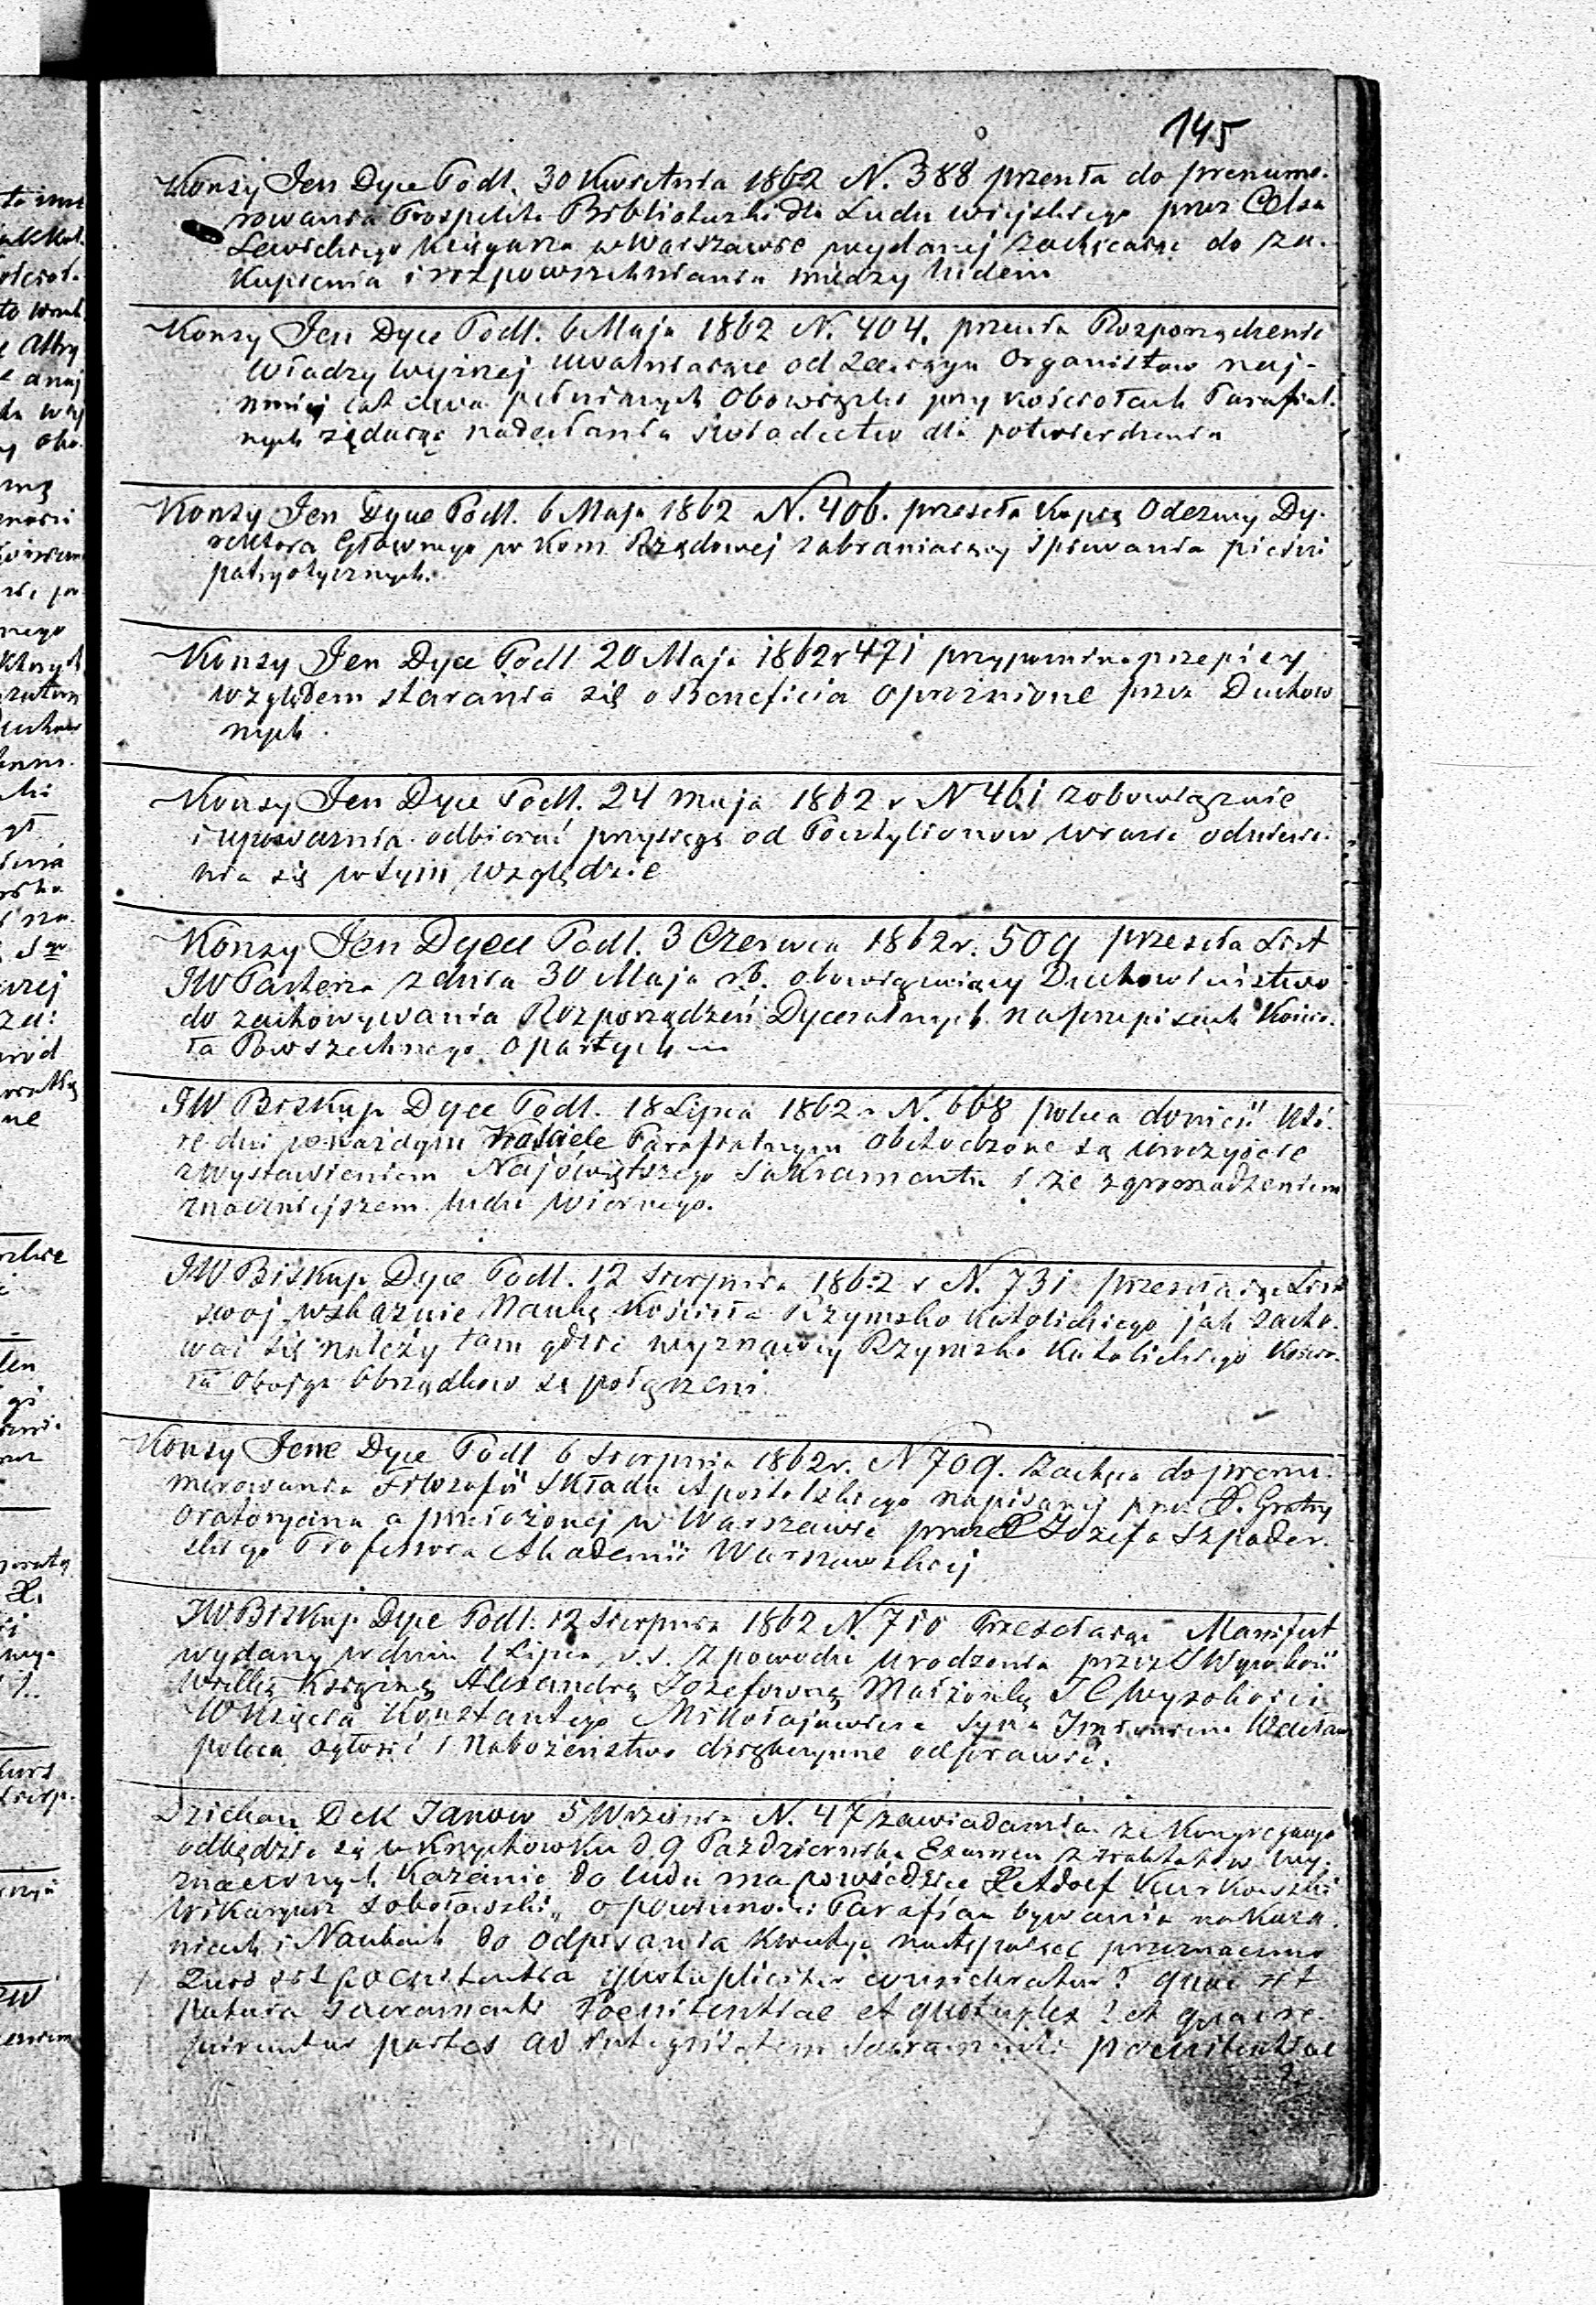 145
Konsy Jen Dyce Podl. 30 Kwietnia 1862 N. 388 przesła do prenume-
rowania Prospekta Biblioteczki dla Ludu wiejskiego przez Celsa
Lewickiego Księgarza w Warszawie wydanej zachęcając do za-
kupienia i rozpowszechniania między ludem
Konsy Jen Dyce Podl. 6 Maja 1862 N. 404. przesła Rozporządzenie
Władzy wyższej uwalniające od zaciągu Organistow naj-
mniej lat dwa pełniących obowiązki przy kościołach Parafial-
nych żądając nadesłania świadectw dla potwierdzenia
Konsy Jen Dyce Podl. 6 Maja 1862 N. 406. przeseła Kopią Odezwy Dy-
rektora Głownego w Kom Rządowej zabraniającej śpiewania pieśni
patryotycznych.
Konsy Jen Dyce Podl 20 Maja 1862 r 471 przypomina przepisy
względem starania się o Beneficia oprożnione przez Duchow
nych.
Konsy Jen Dyce Podl. 24 maja 1862 r N 461 zobowiązuie
i upoważnia odbierać przysięgę od Pocztylionow w razie odniesie-
nia się w tym względzie
Konsy Jen Dyce Podl. 3 Czerwca 1862 r. 509 przeseła List
JW Pasterza z dnia 30 Maja r.b. obowiązuiący Duchowieństwo
do zachowywania Rozporządzeń Dycezalnych na przepisach Kościo-
ła Powszechnego opartych
JW Biskup Dyce Podl. 18 Lipca 1862 r N. 668 poleca donieść któ-
re dni w każdym Kościele Parafialnym obchodzone są uroczyście
z wystawieniem Najświętszego Sakramentu i ze zgromadzeniem
znaczniejszem ludu wiernego.
JW Biskup Dyce Podl. 12 Sierpnia 1862 r N. 731 przesełaiąc List
swoj wskazuie Naukę Kościoła Rzymsko Katolickiego jak zacho-
wać się należy tam gdzie wyznawcy Rzymsko Katolickiego Kościo-
ła obojga Obrządkow są połączeni.
Konsy Jene Dyce Podl 6 Sierpnia 1862 r. N 709. Zachęca do prenu-
merowania Filozofii Składu Apostolskiego napisanej prz. X. Gratry
Oratoryana a przełożonej w Warszawie przez X Jozefa Szpader-
skiego Professora Akademii Warszawskiej
JW. Biskup Dyce Podl. 12 Sierpnia 1862 N. 710 Przesełaiąc Manifest
wydany w dniu 1 Lipca v.s. z powodu urodzenia przez Wysokość
Wielką Księżnę Alexandrę Jozefownę Małżonkę JC Wysokości
W Księcia Konstantego Mikołajewicza Syna Imieniem Wacław
poleca ogłosić i Nabożeństwo dziękczynne odprawić.
Dziekan Dek Janow 5 Września N. 47 zawiadamia że Kongregacya
odbędzie się w Krzyczowku d. 9 Października Examen z traktatow wy-
znaczonych Kazanie do ludu ma powiedzieć X Adolf Kurkowski
Wikaryusz o powinności Parafian bywania na Kaza-
niach i Naukach do odpisania Kwestye następuiące przeznaczono
Quid sit poenitentia quotupliciter consideratur? quae sit
natura sacramenti Poenitentiae et quotuplex? et quae re-
quiruntur partes ad integritatem sacramenti poenitentiae
?